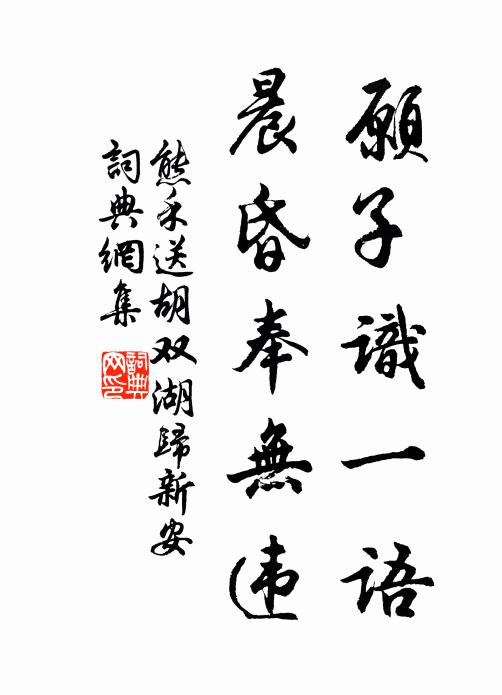 願子識一語
晨昏奉無违
熊禾送胡双湖歸新安
詞典網集
詞典网印